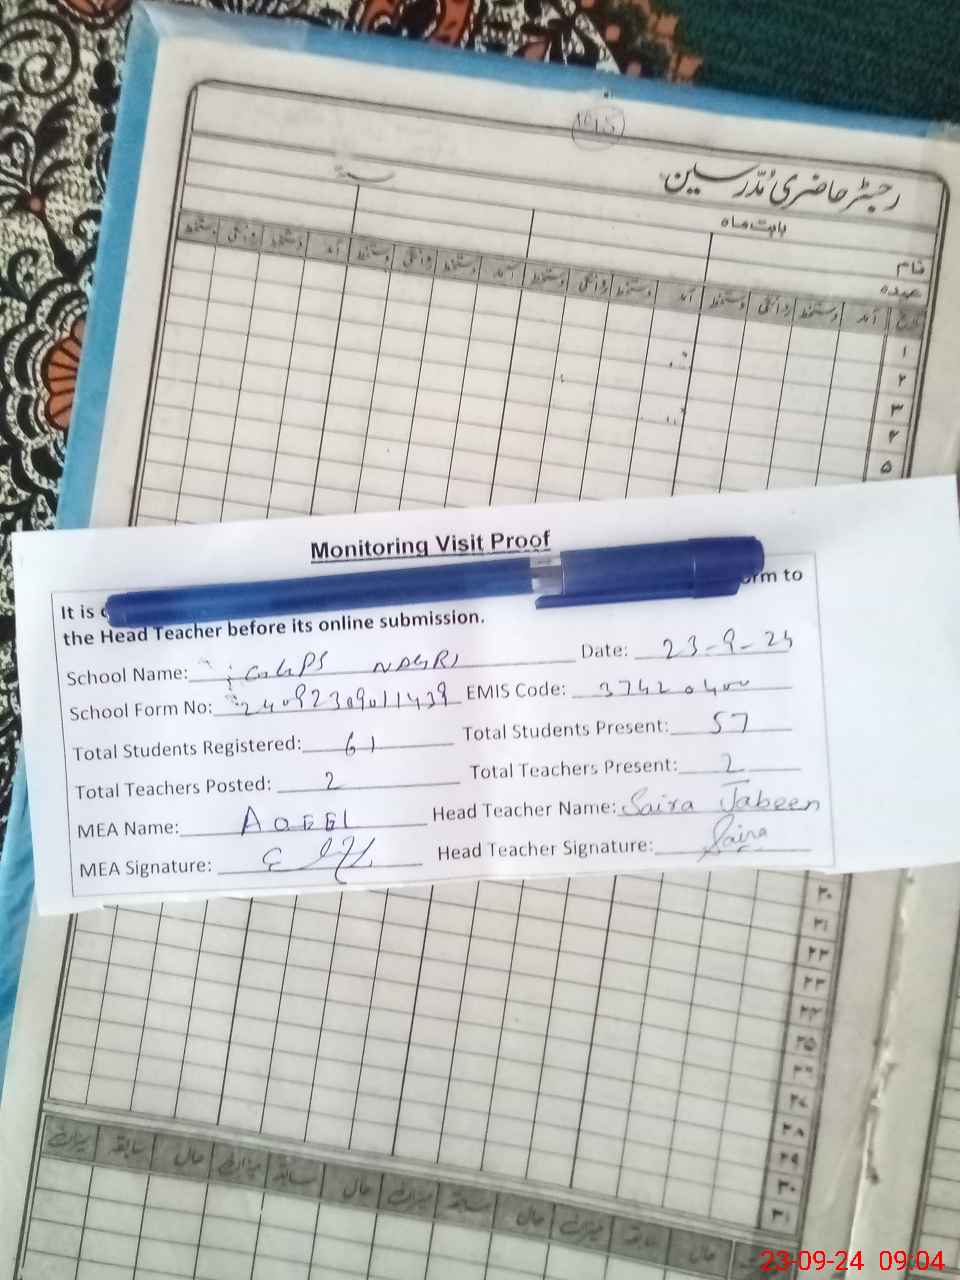 رجسٹر حاضری مُدّرسین
بابت ماہ
نام
عہدہ
تاریخ آمد دستخط روانگی دستخط آمد دستخط روانگی دستخط آمد دستخط روانگی دستخط آمد دستخط روانگی دستخط
۱
۲
۳
۴
۵
Monitoring Visit Proof
It is
orm to
the Head Teacher before its online submission.
School Name: Date: 23-9-24
School Form No: 24092309011439 EMIS Code: 37420400
Total Students Registered: 61 Total Students Present: 57
Total Teachers Posted: 2 Total Teachers Present: 2
MEA Name: AQEEL Head Teacher Name: Saira Jabeen
MEA Signature: Head Teacher Signature: Saira
۲۰
۲۱
۲۲
۲۳
۲۴
۲۵
۲۶
۲۷
۲۸
۲۹
۳۰
۳۱
حال سابقہ میزان حال سابقہ میزان حال سابقہ میزان حال سابقہ میزان
23-09-24 09:04